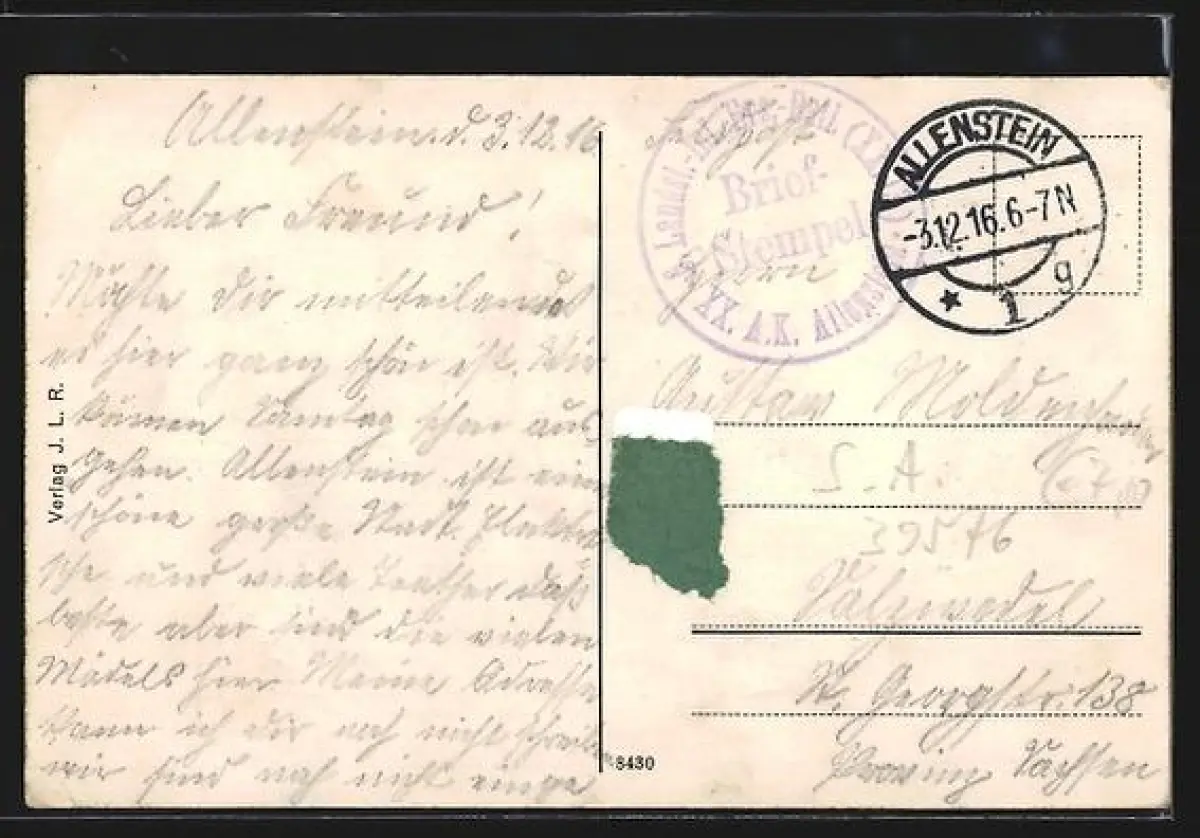 Allenstein d. 3.12.16
Lieber Freund!
Möchte dir mitteilen das
es hier ganz schön ist. Wir
können Sonntag schon aus
gehen. Allenstein ist eine
schöne große Stadt. Elektri
sche und viele Teather daß
beste aber sind die vielen
Mädels hier. Meine Adresse
kann ich dir noch nicht schreiben
wir sind noch nicht einge
Verlag J. L. R.
8430
Feldpost
Landst.-Inf.-Batl. (XX.
Brief-
Stempel
XX. A.K. Allenstein
ALLENSTEIN
-3.12.16.6-7N
* 1 g
Herrn
Gustav
S.A.
39576
Salzwedel
St. Georgstr. 138
Provinz Sachsen